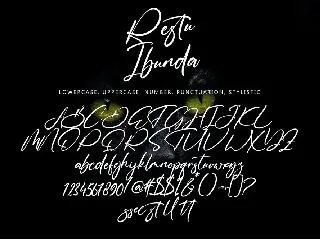 Restu
Ibunda
LOWERCASE, UPPERCASE, NUMBER, PUNCTUATION, STYLISTIC
ABCDEFGHIJKL
MNOPQRSTUVWXYZ
abcdefghijklmnopqrstuvwxyz
1234567890!@#$%&*()-=[]?